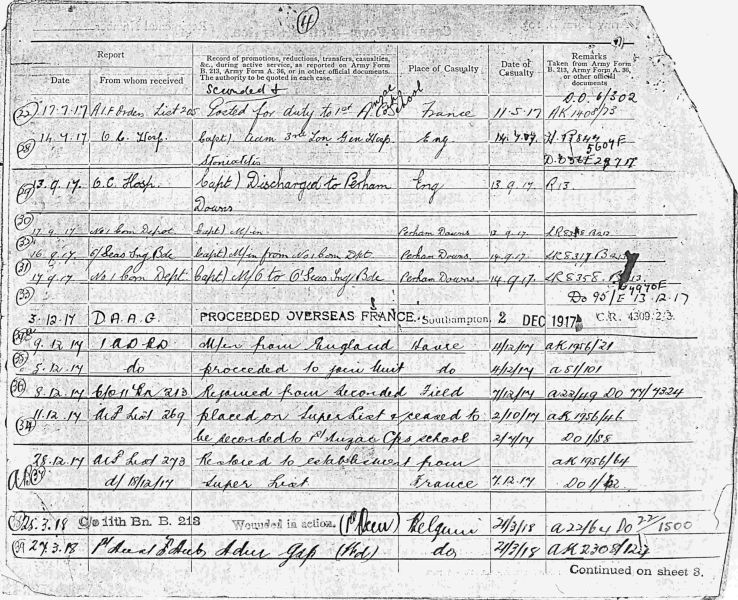 4
Report
Record of promotions, reductions, transfers, casualties, &c., during active service, as reported on Army Form B. 213, Army Form A. 36, or in other official documents. The authority to be quoted in each case.
Place of Casualty
Date of Casualty
Remarks
Taken from Army Form B. 213, Army Form A. 36, or other official documents
Date From whom received
Seconded &
D.O. 6/302
17.7.17 AIF Orders List 205 Posted for duty to 1st Anzac Corps School France 11.5.17 AK 1408/73
28 14.7.17 O.C. Hosp. Capt) Adm 3rd Lon Gen Hosp Eng. 14.7.17
5604E
Stomatitis
29 13.9.17. O.C. Hosp. Capt) Discharged to Perham Eng 13.9.17. R13.
Downs
30
17.9.17 No 1 Com Depot Capt) M/in Perham Downs 13.9.17 B213
16.9.17 O/Seas Tng Bde Capt) M/in from No 1 Com Dpt. Perham Downs. 14.9.17 B213
31
17.9.17 No 1 Com Dept. Capt) M/O to O'Seas Tng Bde Perham Downs. 14.9.17. LR 8358 B213
33
4970E
DO 90/E 13.12.17
3.12.17 D.A.A.G. PROCEEDED OVERSEAS FRANCE. Southampton. 2 DEC 1917 C.R. 4309.2/3.
9.12.17 1 A D B D M/in from England Havre 4/12/17 AK1956/21
35 5.12.17 do proceeded to join Unit do 4/12/17 a 51/101
36 8.12.17 C/O 11 Bn 213 Rejoined from Seconded Field 7/12/17 a22/49 DO 77/4324
34 11.12.17 AIF List 269 placed on Super List & ceased to 2/10/17 aK1956/46
be seconded to 1st Anzac Cps school DO 1/38
28.12.17 AIF List 273 Restored to establishment from aK1956/64
d/ 18/12/17 Super List France 7.12.17 DO 1/62
25.3.18 C/o 11th Bn. B. 213 Wounded in action. Belgium 21/3/18 a22/64 DO 22/1500
39 27.3.18 Adm Gas (Wd) do 21/3/18 AK2308/124
Continued on sheet 3.